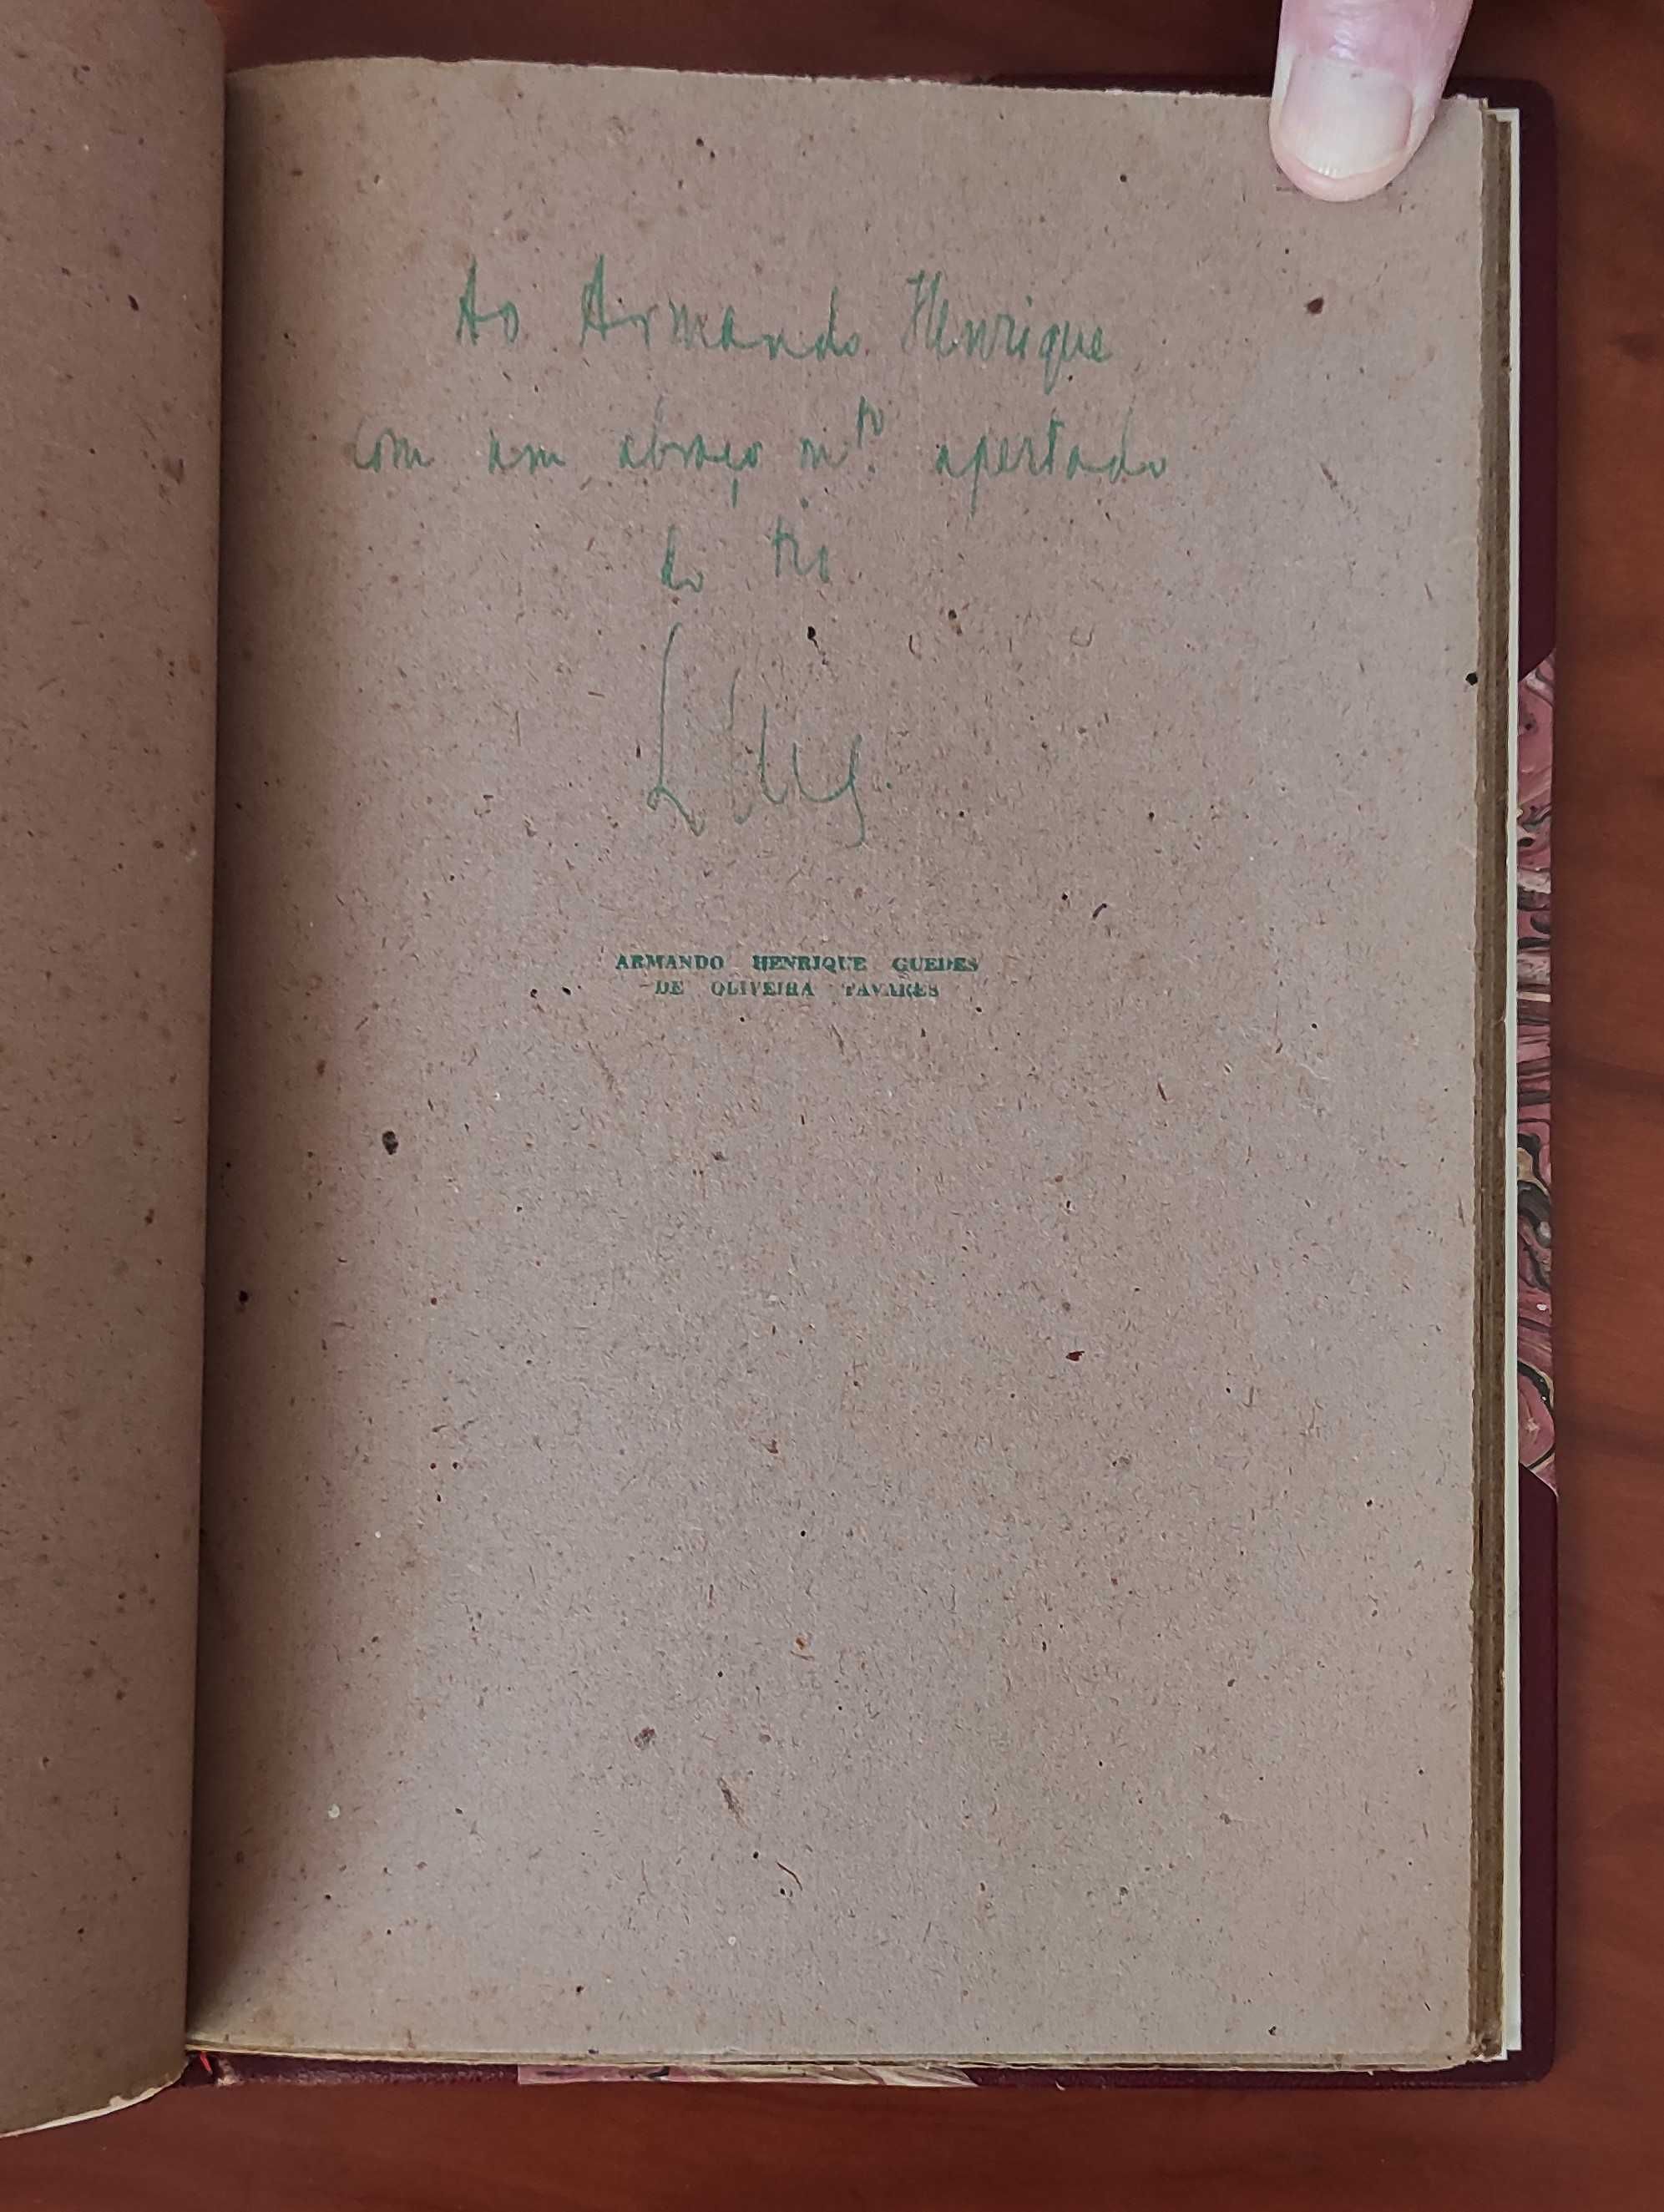 Ao Armando Henrique
com um abraço mto. apertado
do tio
ARMANDO HENRIQUE GUEDES
DE OLIVEIRA TAVARES